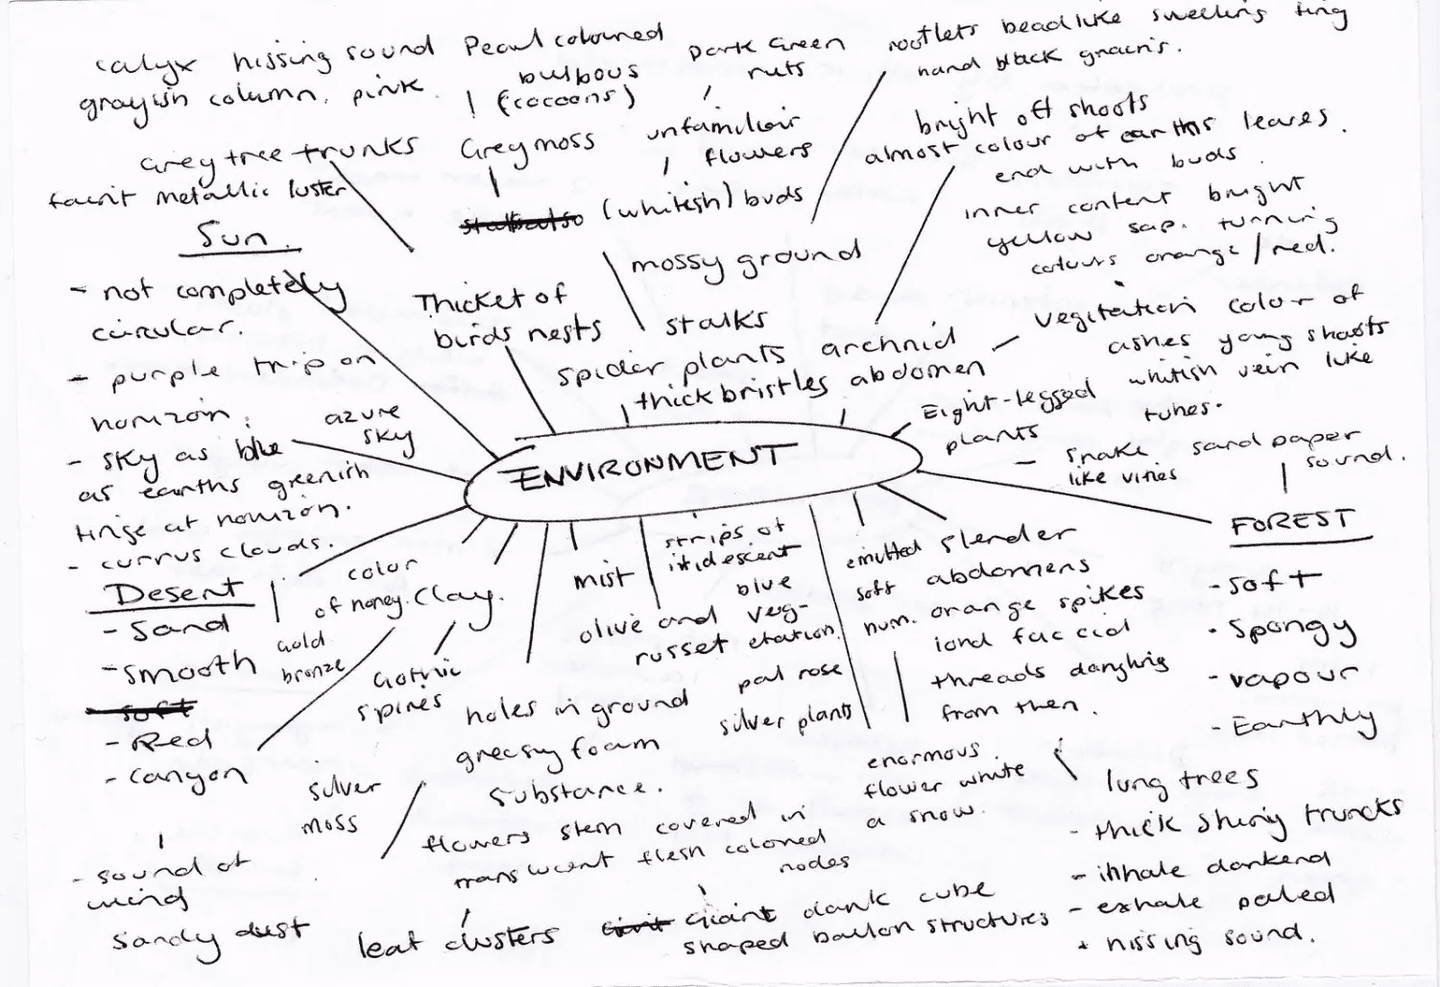 calyx hissing sound
grayish column. pink.
Pearl coloured
bulbous
(cocoons)
Dark Green
nuts
rootlets beadlike swelling tiny
hard black grains.
Grey tree trunks
faint metallic luster
Grey moss
unfamiliar
flowers
(whitish) buds
bright off shoots
almost colour of earths leaves.
end with buds.
inner content bright
yellow sap. turning
colours orange/red.
Sun.
- not completely
circular.
- purple trip on
horizon.
- sky as blue
as earths greenish
tinge at horizon.
- currus clouds.
azure
sky
Thicket of
birds nests
mossy ground
stalks
spider plants
thick bristles
archnid
abdomen
vegitation color of
ashes young shoots
whitish vein like
tubes.
Eight-legged
plants
- snake
like vities
sand paper
sound.
ENVIRONMENT
FOREST
- soft
- spongy
- vapour
- Earthly
Desert
- Sand
- smooth
soft
- Red
- canyon
- sound of
wind
sandy dust
color
of honey.
gold
bronze
Clay.
Gothic
spires
silver
moss
mist
holes in ground
greasy foam
substance.
strips of
iridescent
blue
veg-
etation.
olive and
russet
pal rose
silver plants
emitted
soft
hum.
slender
abdomens
orange spikes
and faccid
threads dangling
from then.
enormous
flower white
a snow.
flowers stem covered in
translucent flesh colored
nodes
leaf clusters
Giant dank cube
shaped ballon structures
lung trees
- thick shiny truncks
- inhale darkend
- exhale paled
- hissing sound.